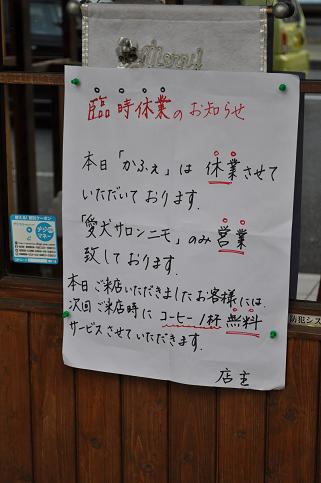 Merry!
臨時休業のお知らせ
本日「かふぇ」は休業させて
いただいております.
「愛犬サロンニモ」のみ営業
致しております.
本日ご来店いただきましたお客様には.
次回ご来店時にコーヒー1杯無料
サービスさせていただきます.
店主
防犯シス